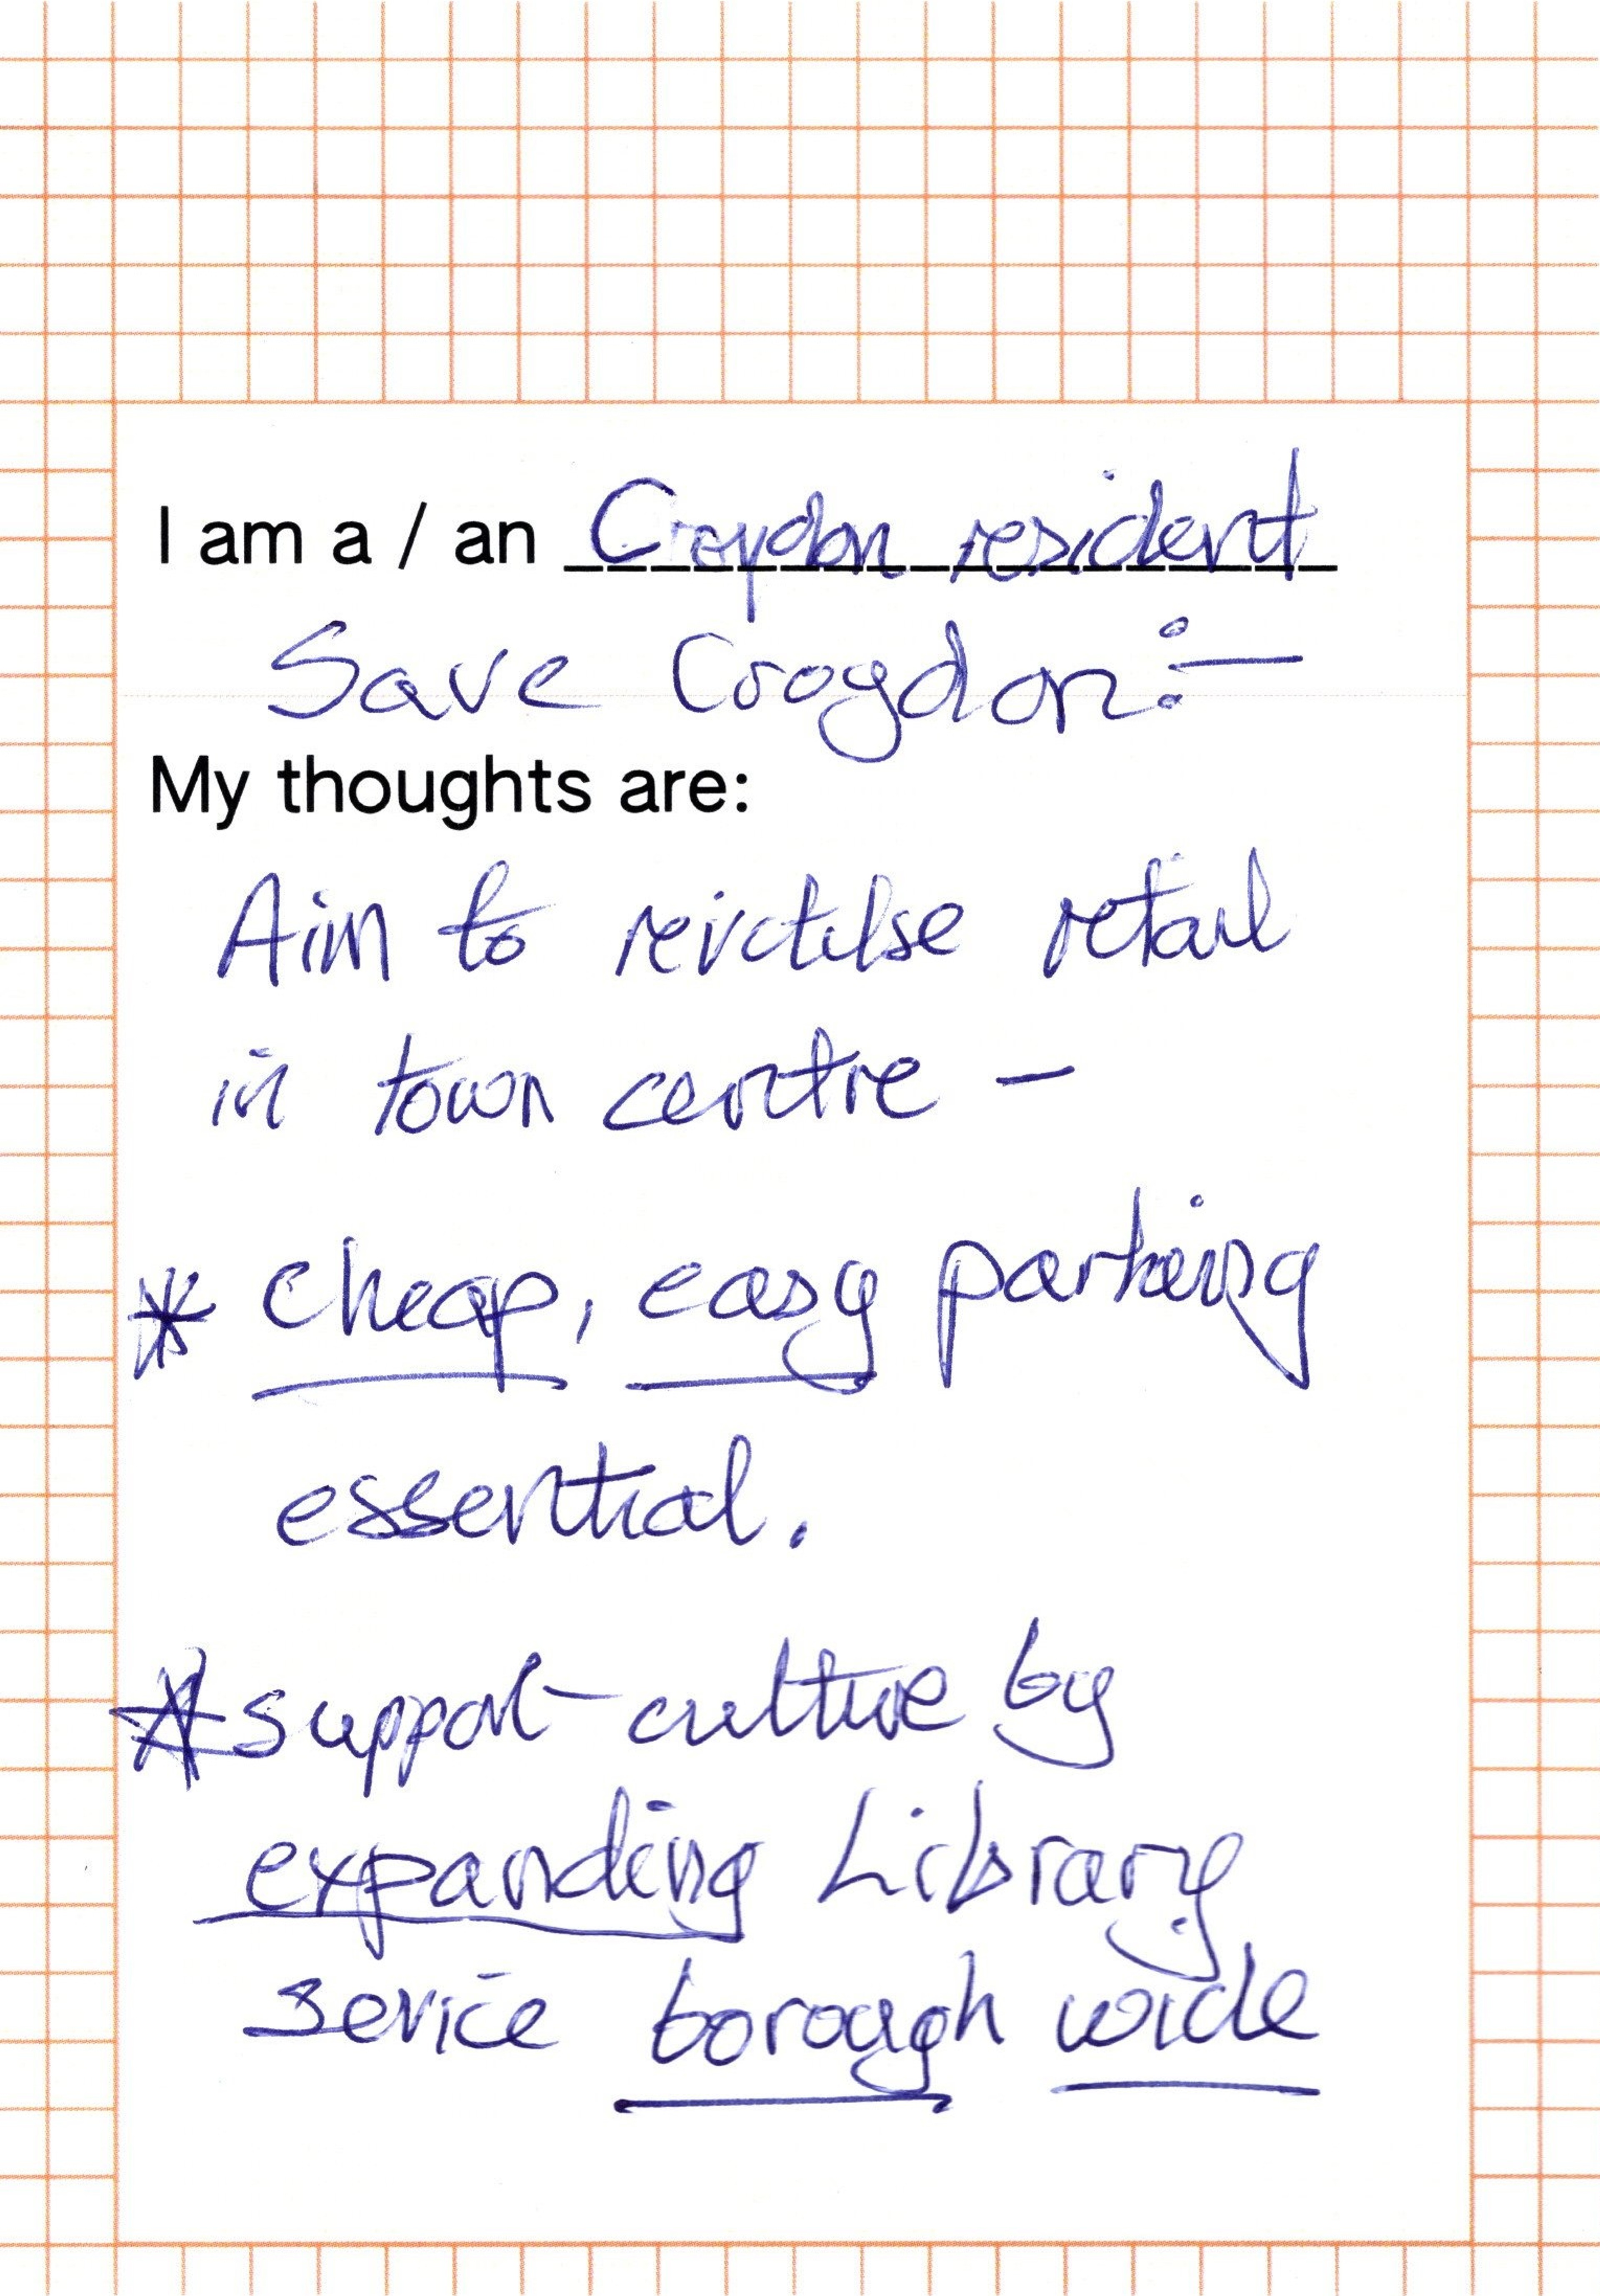 I am a / an Croydon resident
Save Croydon:—
My thoughts are:
Aim to revitalise retail
in town centre —
* cheap, easy parking
essential.
* support culture by
expanding Library
service borough wide